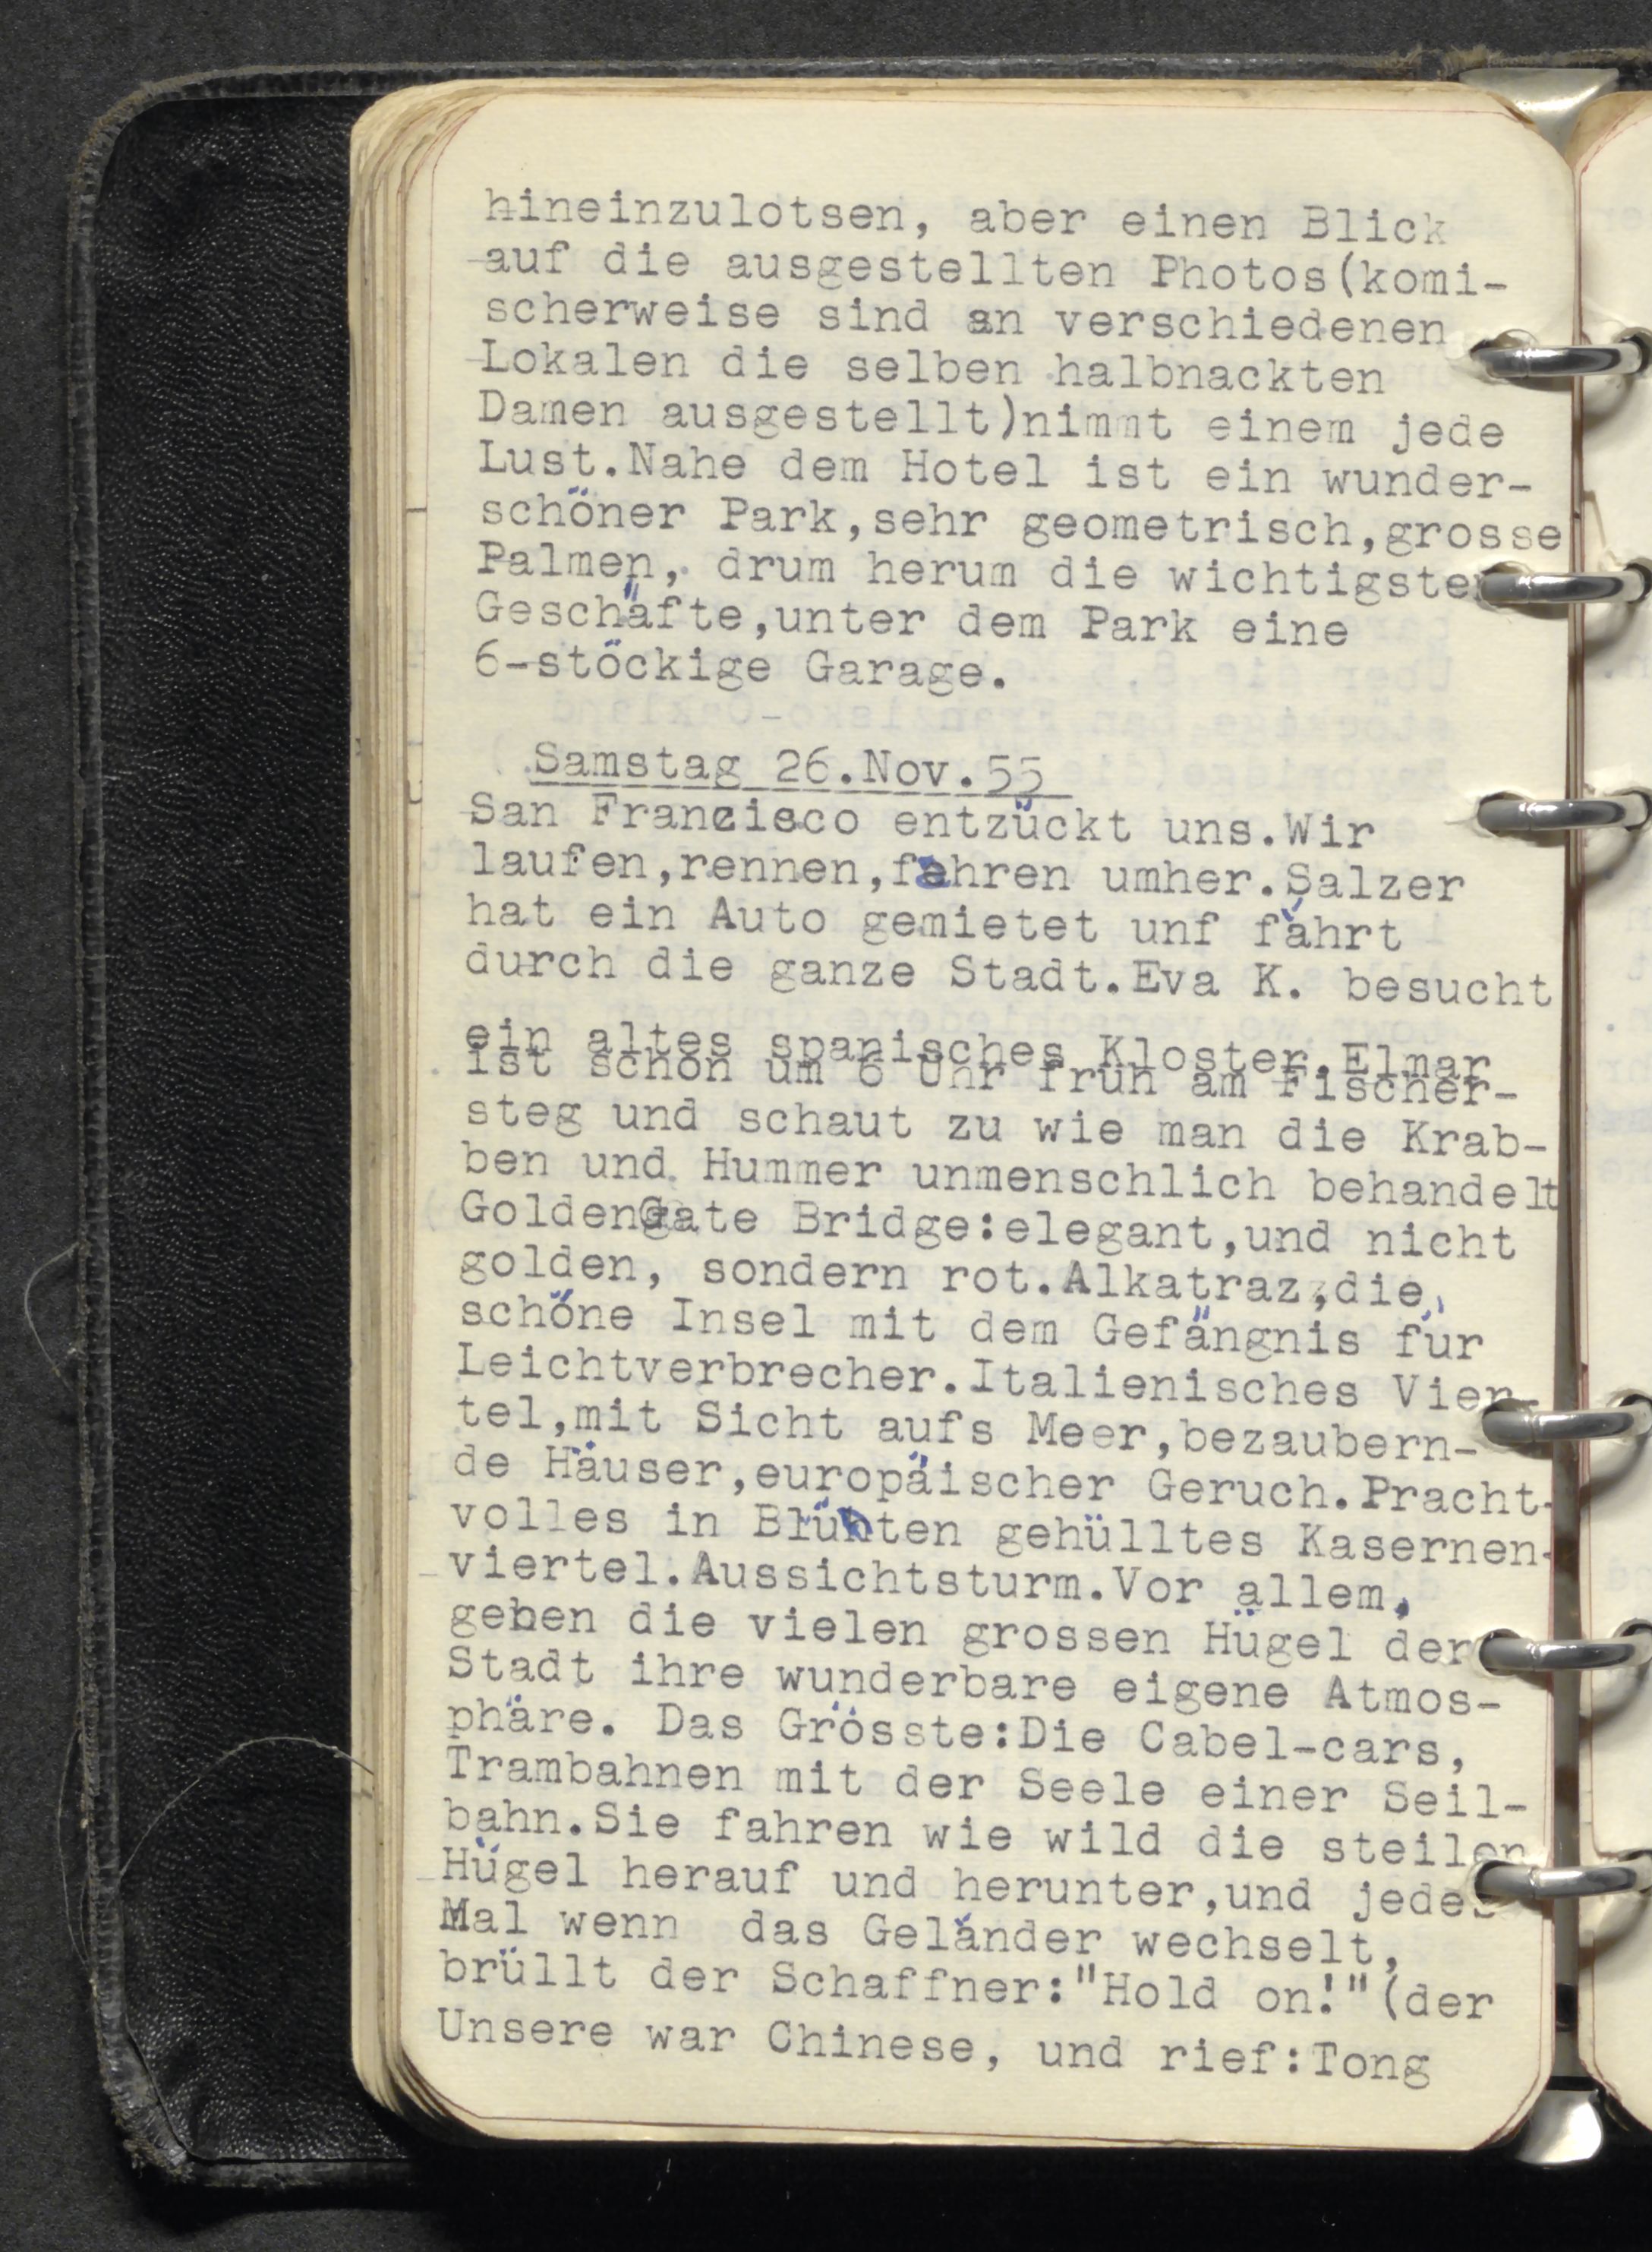 hineinzulotsen, aber einen Blick
auf die ausgestellten Photos(komi-
scherweise sind an verschiedenen
Lokalen die selben halbnackten
Damen ausgestellt)nimmt einem jede
Lust.Nahe dem Hotel ist ein wunder-
schöner Park,sehr geometrisch,grosse
Palmen, drum herum die wichtigsten
Geschäfte,unter dem Park eine
6-stöckige Garage.
Samstag 26.Nov.55
San Francisco entzückt uns.Wir
laufen,rennen,fahren umher.Salzer
hat ein Auto gemietet unf fährt
durch die ganze Stadt.Eva K. besucht
ein altes spanisches Kloster.Elmar
ist schon um 6 Uhr früh am Fischer-
steg und schaut zu wie man die Krab-
ben und Hummer unmenschlich behandelt
GoldenGate Bridge:elegant,und nicht
golden, sondern rot.Alkatraz,die
schöne Insel mit dem Gefängnis für
Leichtverbrecher.Italienisches Vier-
tel,mit Sicht aufs Meer,bezaubern-
de Häuser,europäischer Geruch.Pracht-
volles in Blühten gehülltes Kasernen-
viertel.Aussichtsturm.Vor allem,
geben die vielen grossen Hügel der
Stadt ihre wunderbare eigene Atmos-
phäre. Das Grösste:Die Cabel-cars,
Trambahnen mit der Seele einer Seil-
bahn.Sie fahren wie wild die steilen
Hügel herauf und herunter,und jedes
Mal wenn das Geländer wechselt,
brüllt der Schaffner:"Hold on!"(der
Unsere war Chinese, und rief:Tong